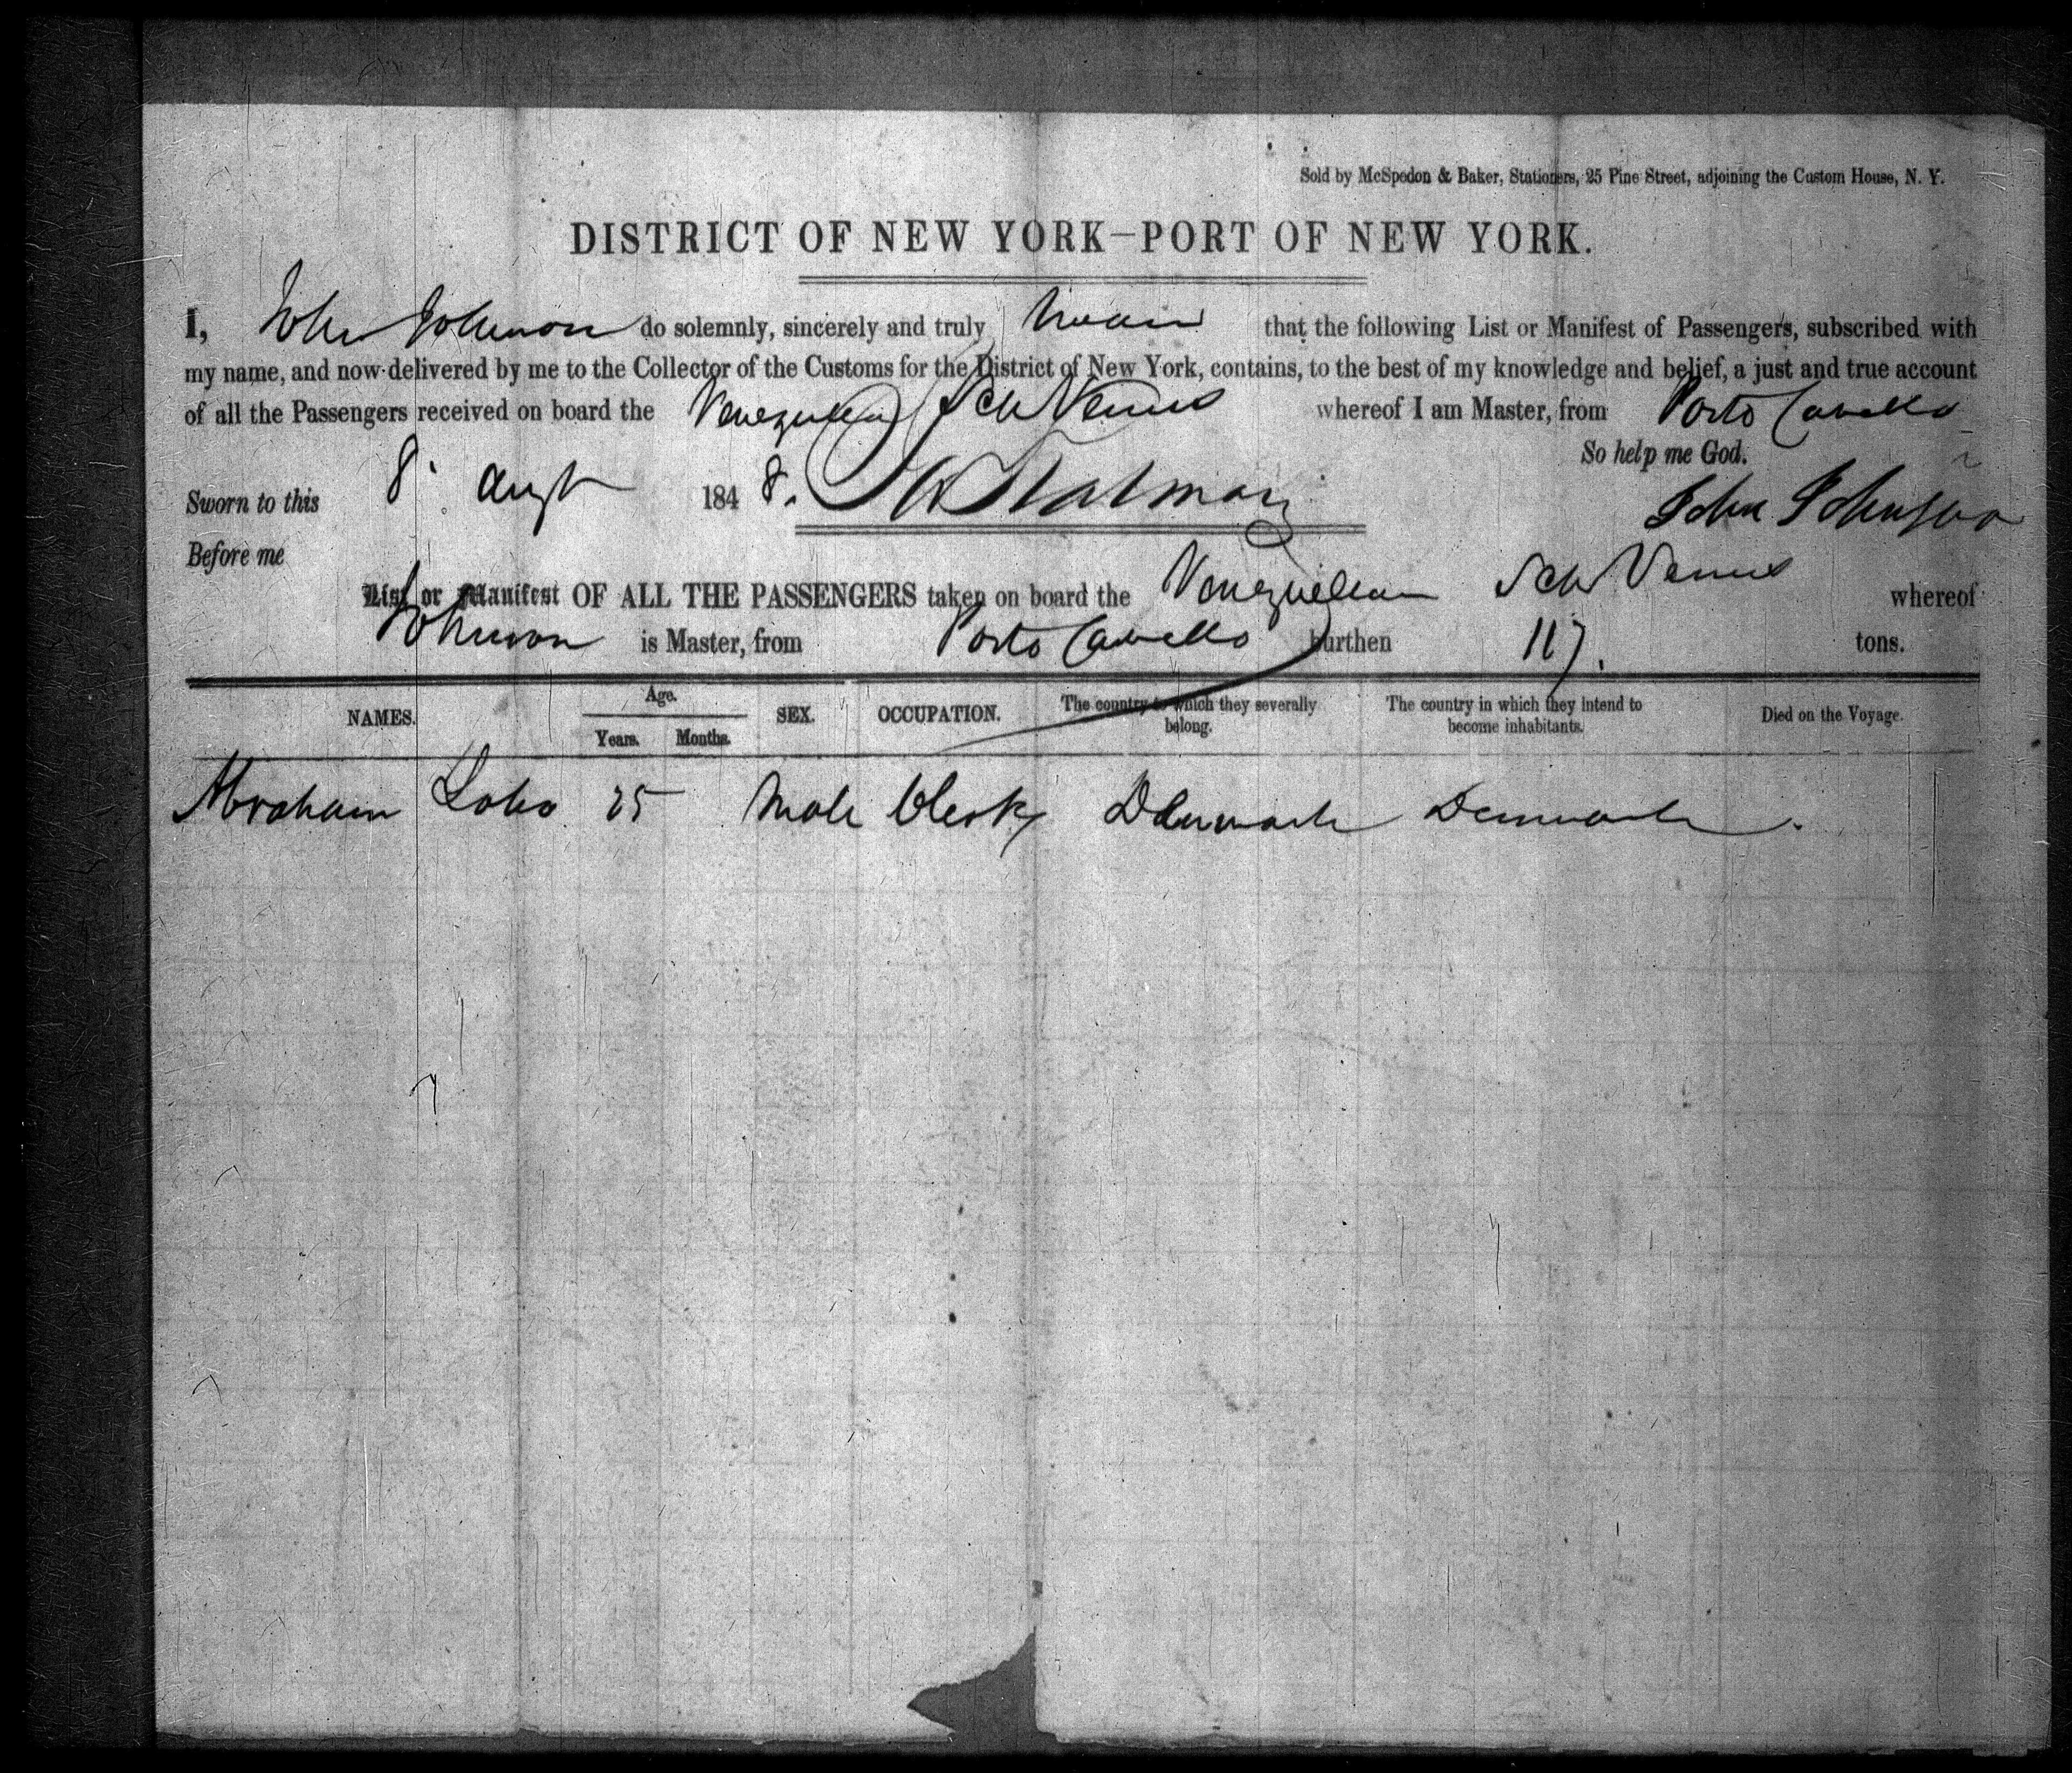 Sold by McSpedon & Baker, Stationers, 25 Pine Street, adjoining the Custom House, N. Y.
DISTRICT OF NEW YORK—PORT OF NEW YORK.
I, John Johnson do solemnly, sincerely and truly swear that the following List or Manifest of Passengers, subscribed with
my name, and now delivered by me to the Collector of the Customs for the District of New York, contains, to the best of my knowledge and belief, a just and true account
of all the Passengers received on board the Venezuelean Sch Venus whereof I am Master, from Porto Cavello
So help me God.
Sworn to this 8 Augt 1848. John Johnson
Before me
List or Manifest OF ALL THE PASSENGERS taken on board the Venezuelean Sch Venus whereof
Johnson is Master, from Porto Cavello burthen 117. tons.
NAMES. Age. Years. Months. SEX. OCCUPATION. The country to which they severally belong. The country in which they intend to become inhabitants. Died on the Voyage.
Abraham Lobo 25 Male Clerk Denmark Denmark.